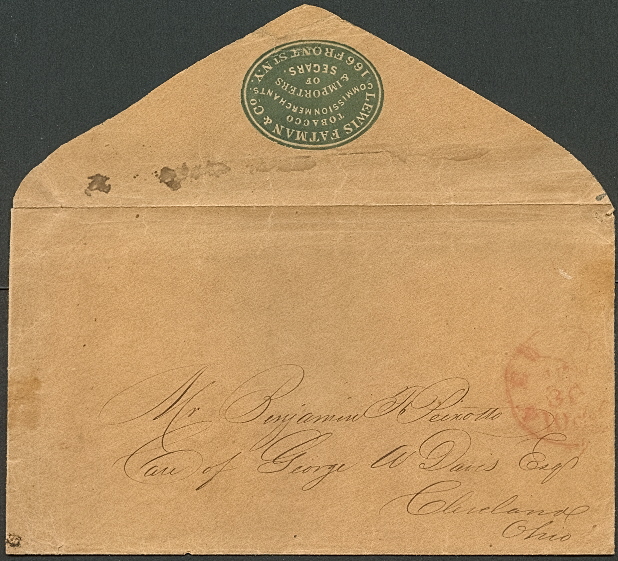 LEWIS FATMAN & CO.
TOBACCO
COMMISSION MERCHANTS
& IMPORTERS
OF
SEGARS.
166 FRONT ST. N.Y.
Mr Benjamin F Peixotto
Care of George A Davis Esqr
Cleveland
Ohio